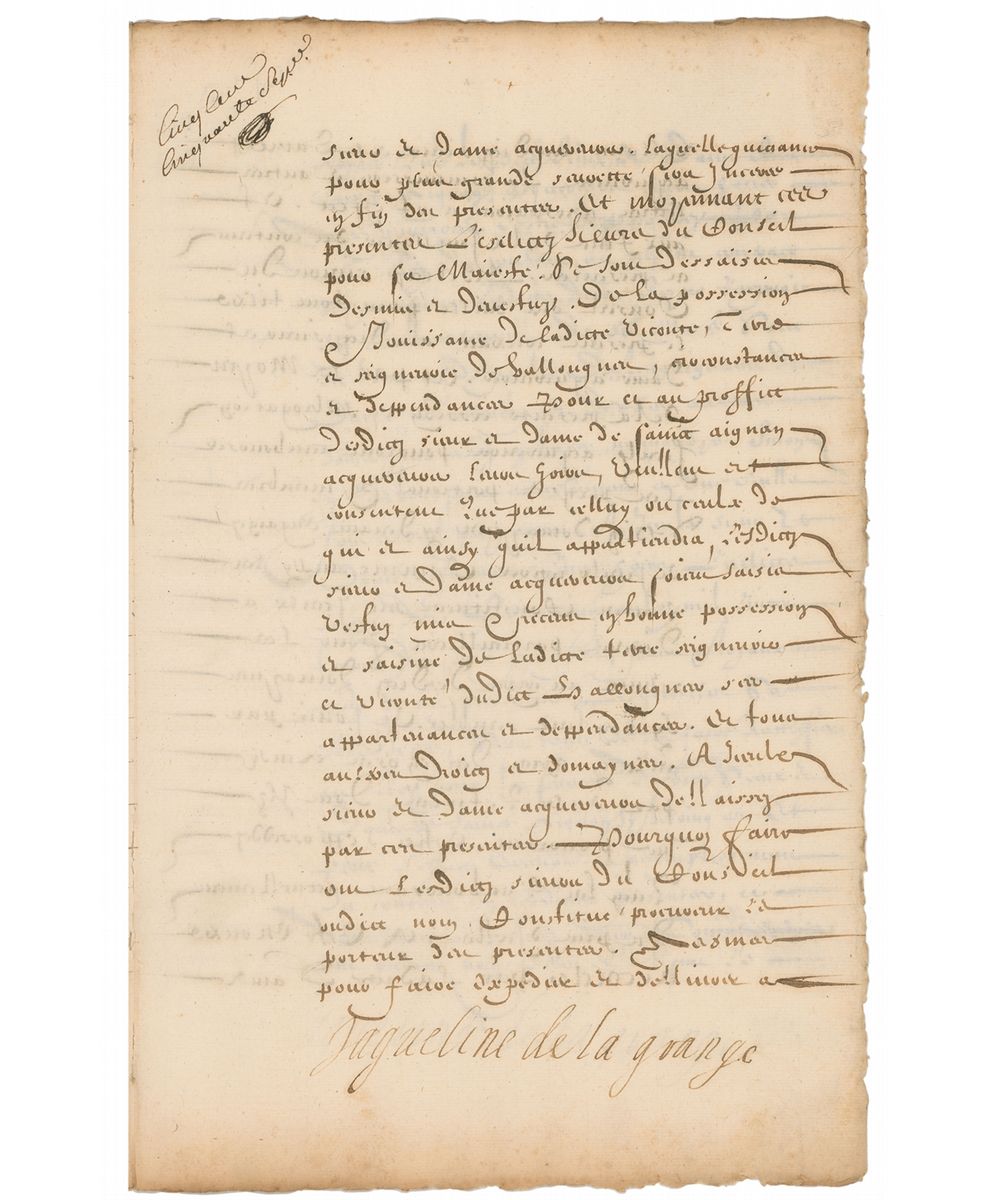 Cinq Cens
Cinquante Sept
sieur et Dame acquereurs. Laquelle quictance
pour plus grande seurette sera Inseree
en fin des presentes. Et moyennant ces
presentes Lesdictz Sieurs du Conseil
pour sa Maieste. Se sont Dessaisis
Desmis et devestuz. De La possession
Jouissance de ladicte viconte, Terre
et seigneurie de vallongnes, circonstances
et deppendances Pour et au proffict
desdictz sieur et dame de sainct aignan
acquereurs leurs hoirs, Veullent et
consentent Que par celluy ou ceulx de
qui et ainsy quil appartiendra, Lesdictz
sieur et Dame acquereurs soient saisis
Vestuz mis et receuz en bonne possession
et saisine de Ladicte terre seigneurie
et viconté dudict Vallongnes ses
appartenances et deppendances. Et tous
aultres droictz et domaynes. A Iceulx
sieur et Dame acquereurs dellaissez
par ces presentes. Pourquoy faire
ont Lesdictz sieurs du Conseil
oudict nom Constitué procureur le
porteur des presentes.
pour faire expedier et dellivrer a
Jaqueline de la grange